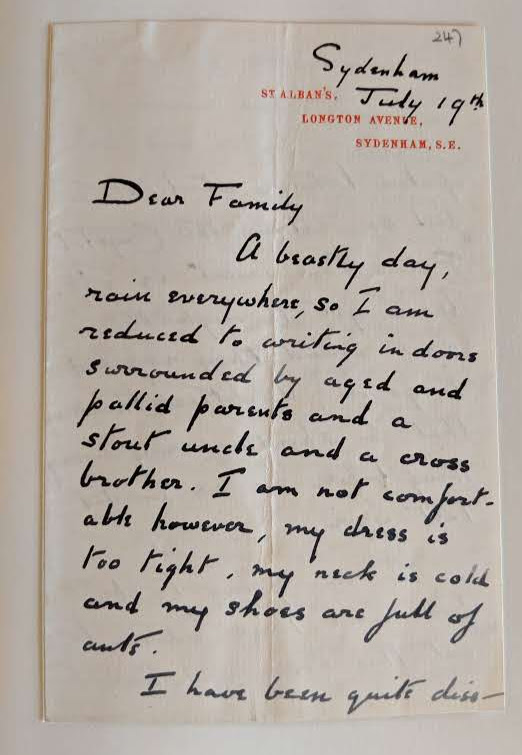 247
Sydenham
ST ALBAN'S,
July 19th
LONGTON AVENUE,
SYDENHAM, S.E.
Dear Family
A beastly day,
rain everywhere, so I am
reduced to writing indoors
surrounded by aged and
pallid parents and a
stout uncle and a cross
brother. I am not comfort-
able however, my dress is
too tight, my neck is cold
and my shoes are full of
ants.
I have been quite diss-